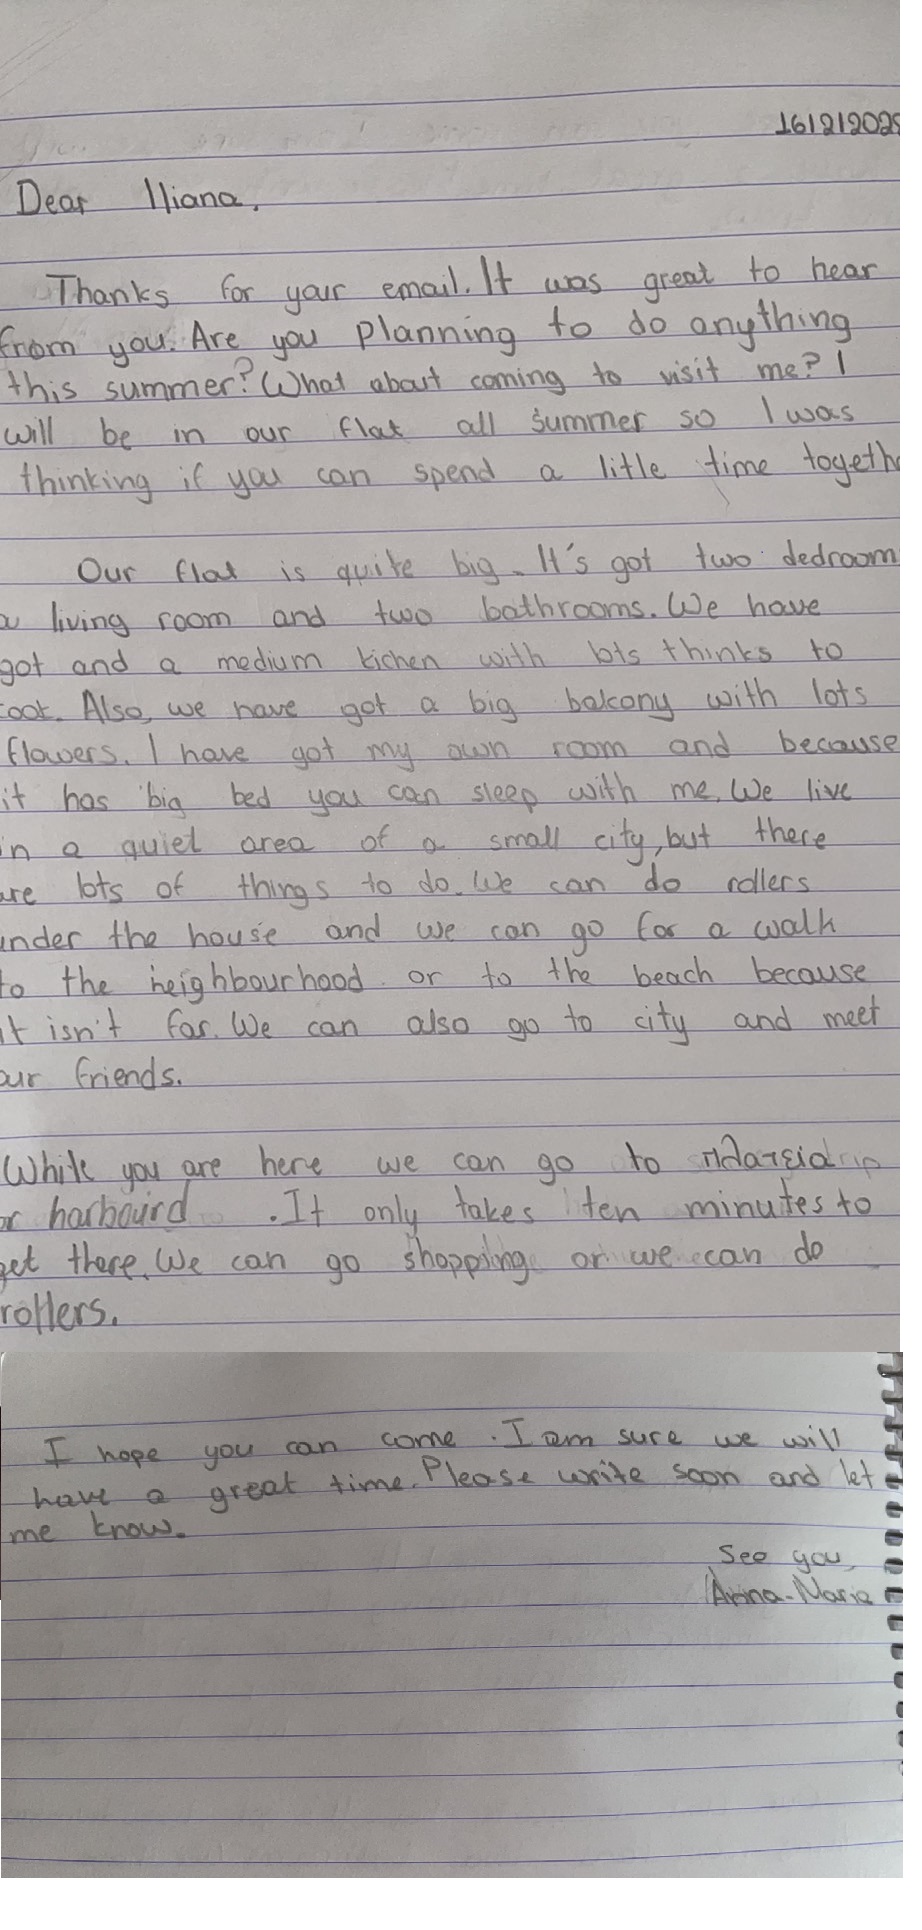 16/2/2025
Dear Iliana,
Thanks for your email. It was great to hear
from you. Are you planning to do anything
this summer? What about coming to visit me? I
will be in our flat all summer so I was
thinking if you can spend a litle time togeth
Our flat is quite big. It's got two dedroom
a living room and two bathrooms. We have
got and a medium kichen with lots thinks to
cook. Also, we have got a big balcony with lots
flowers. I have got my own room and because
it has big bed you can sleep with me. We live
in a quiet area of a small city, but there
are lots of things to do. We can do rollers
under the house and we can go for a walk
to the neighbourhood or to the beach because
it isn't far. We can also go to city and meet
our friends.
While you are here we can go to πλατεία
or harbourd. It only takes ten minutes to
get there. We can go shopping or we can do
rollers.
I hope you can come. I am sure we will
have a great time. Please write soon and let
me know.
See you,
Anna-Maria